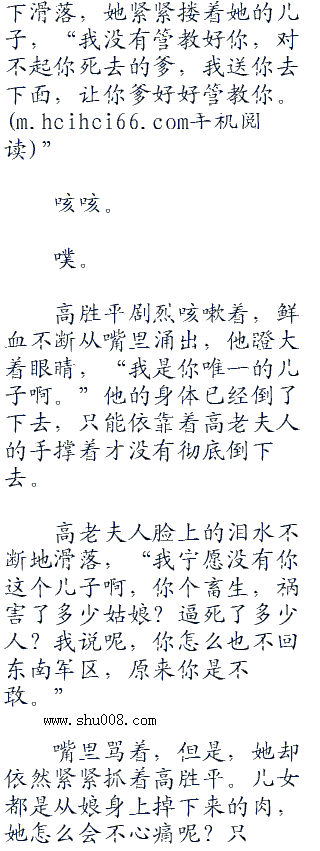 下滑落，她紧紧搂着她的儿
子，“我没有管教好你，对
不起你死去的爹，我送你去
下面，让你爹好好管教你。
(m.hcihci66.com手机阅
读)”
咳咳。
噗。
高胜平剧烈咳嗽着，鲜
血不断从嘴里涌出，他瞪大
着眼睛，“我是你唯一的儿
子啊。”他的身体已经倒了
下去，只能依靠着高老夫人
的手撑着才没有彻底倒下
去。
高老夫人脸上的泪水不
断地滑落，“我宁愿没有你
这个儿子啊，你个畜生，祸
害了多少姑娘？逼死了多少
人？我说呢，你怎么也不回
东南军区，原来你是不
敢。”
www.shu008.com
嘴里骂着，但是，她却
依然紧紧抓着高胜平。儿女
都是从娘身上掉下来的肉，
她怎么会不心痛呢？只